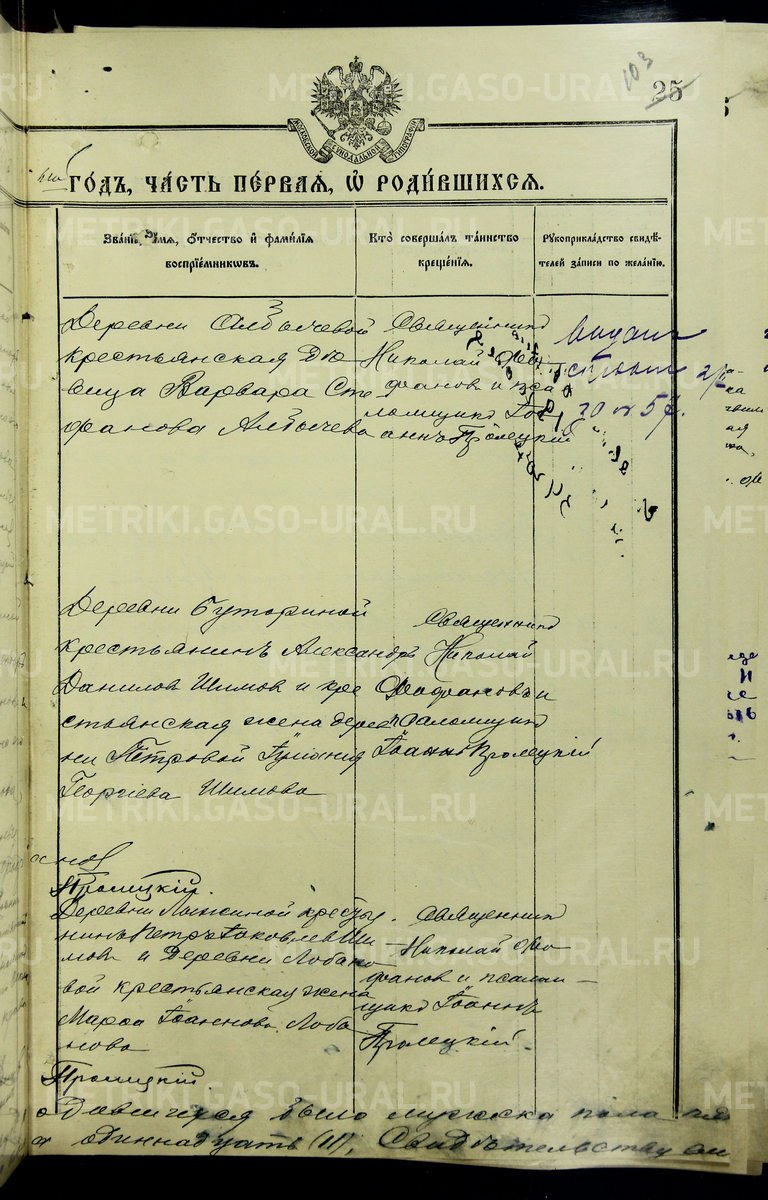 103
25
МОСКОВСКОЙ СИНОДАЛЬНОЙ ТИПОГРАФІИ
го́дъ, ча́сть пе́рвая, ѡ҆ роди́вшихся.
Зва́нїе, и҆́мя, ѻ҆́тчество и҆ фами́лїя воспрїе́мникѡвъ.
Кто̀ соверша́лъ та́инство креще́нїя.
Рꙋкоприкла́дство свидѣ́телей за́писи по жела́нїю.
Деревни Албычевой
крестьянская дѣ
вица Варвара Сте
фанова Албычева
Священникъ
Николай
фановъ и пса
ломщикъ Іо
аннъ Тролецкій
Деревни Буториной
крестьянинъ Александръ
Даниловъ Шимовъ и кре
стьянская жена дерев
ни Петровой Іуліанія
Георгіева Шимова
Священникъ
Николай
Феофановъ и
псаломщикъ
Іоаннъ Тролецкій
Тролецкій.
Деревни Лыжиной крестья
нинъ Петръ Іаковлевъ Ши
мовъ и Деревни Лобано
вой крестьянская жена
Марѳа Іоаннова Лоба
нова
Священникъ
Николай Фео
фанов и псалом
щикъ Іоаннъ
Тролецкій.
Тролецкій.
было мужска пола
одиннадцать (11), Свидѣтельству
METRIKI.GASO-URAL.RU